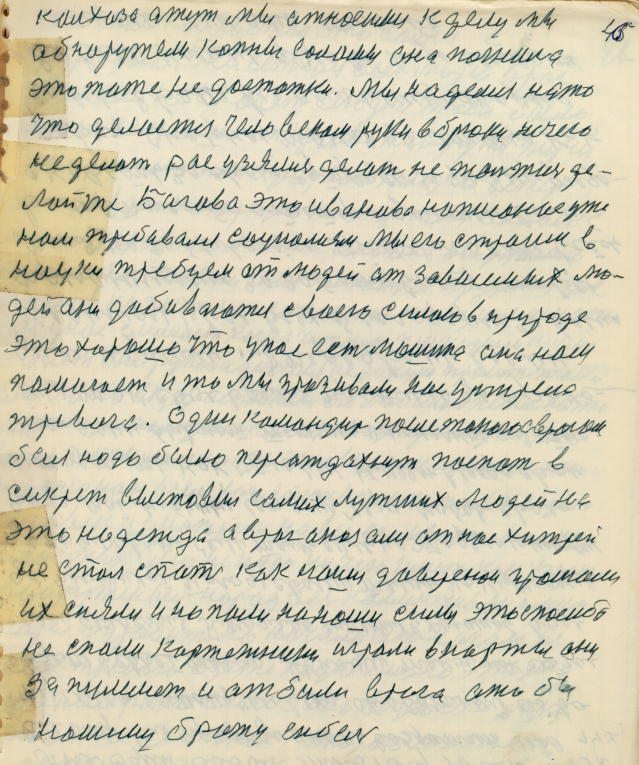 45
колхоза а тут мы относимся к делу мы
обнаружели копны соломы она погнила
это тоже не достатки. Мы надеемся на то
что делается человеком руки в брюки нечего
не делот раз узялися делот не
лойте это Иванова написаное уже
нам требавался социализм мы его строим в
науки требуем от людей от зависимых лю-
дей они добиваются своего силою в природе
это хорошо что у нас есть машина она нам
помогает и то мы прозивали нас утрено
тревога. Один командир после такого с врагом
боя надо было переотдахнут поспат в
секрет выставил самих лутших людей на
это надежда а враг оказался от нас хитрей
не стал спать как наши довереной прошли
их сняли и напали на наши силы это спосибо
не спали картежники играли в карты они
за пулемет и отбили врага а то бы
нашему брату